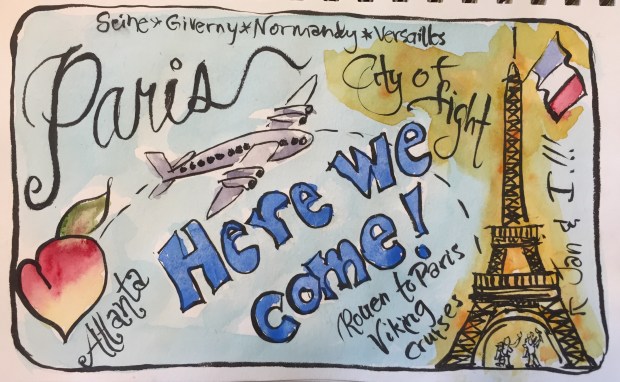 Seine*Giverny*Normandy*Versailles
Paris
City of
Light
Here we
come!
Atlanta
Rouen to Paris
Viking
cruises